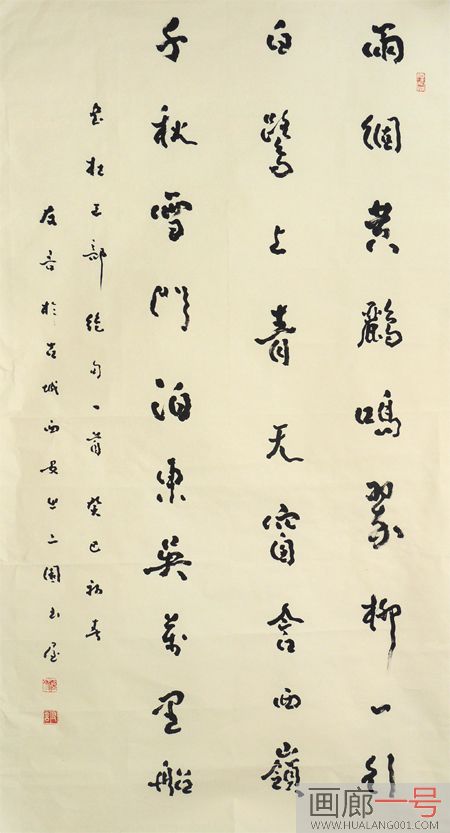 兩個黃鸝鳴翠柳一行
白鷺上青天窗含西嶺
千秋雪門泊東吳萬里船
書杜工部絕句一首癸巳初春
友於古城西安園書屋
画廊一号
WWW.HUALANG001.COM